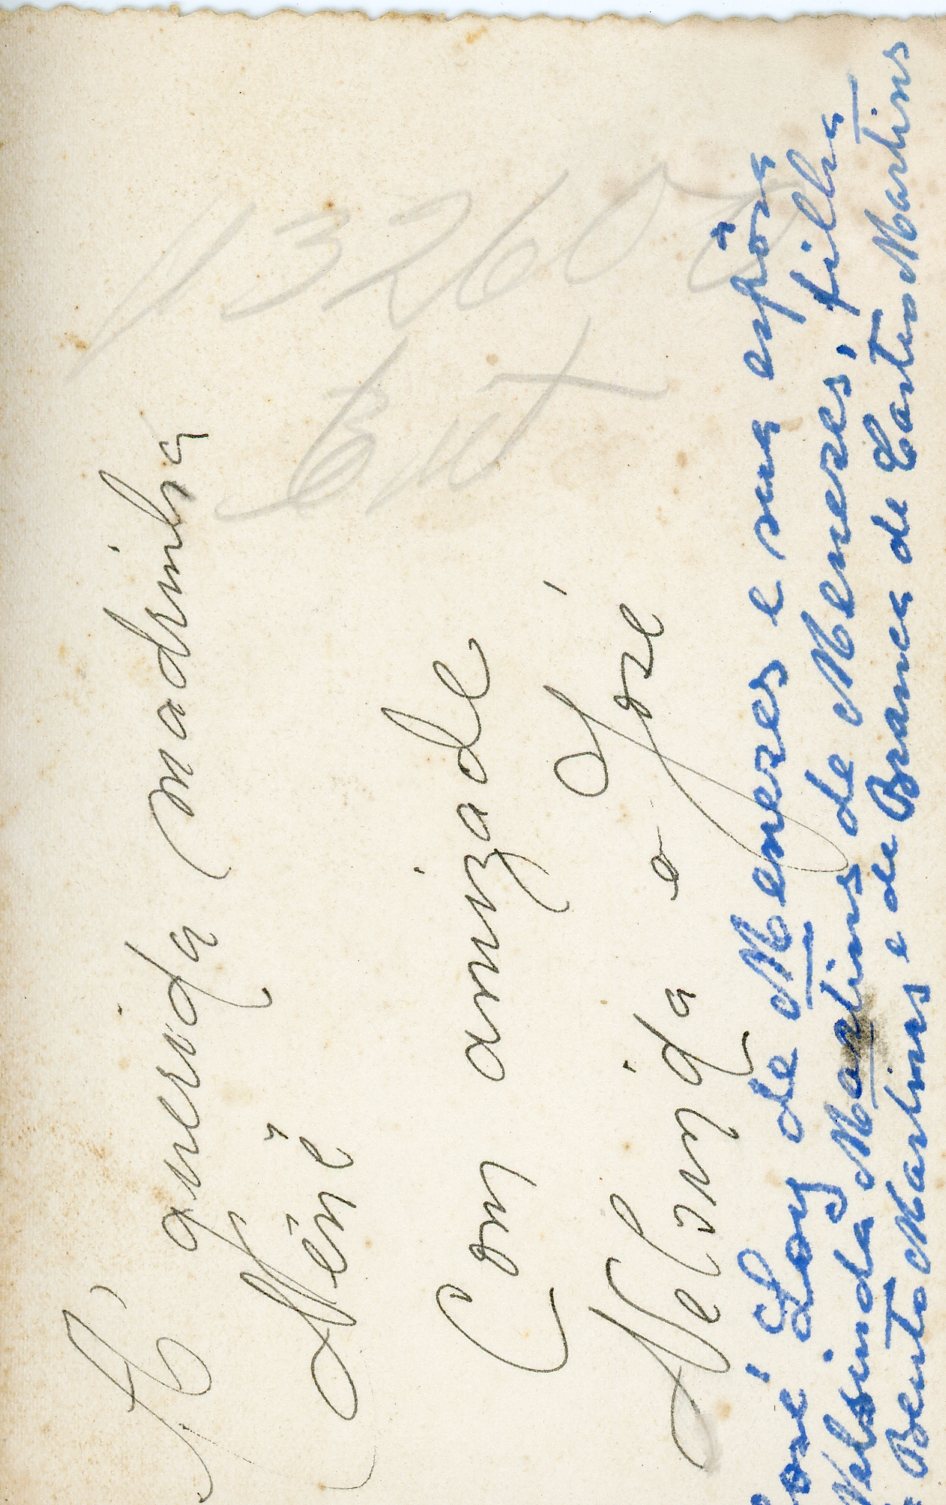 À querida madrinha
Nênê
Com amizade
Nelsinda e José
José Loy de Menezes e sua espôsa
Nelsinda Martins de Menezes, filha
Bento Martins e de Branca de Castro Martins
132600